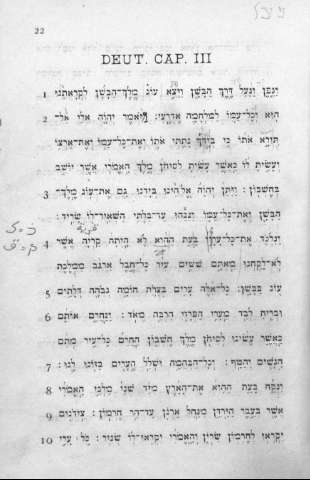 22
DEUT. CAP. III
1 ונפן ונעל דרך הבשן ויצא עוג מלך־הבשן לקראתנו
2 הוא וכל־עמו למלחמה אדרעי׃ ויאמר יהוה אלי אל־
תירא אתו כי בידך נתתי אתו ואת־כל־עמו ואת־ארצו
ועשית לו כאשר עשית לסיחן מלך האמרי אשר יושב
3 בחשבון׃ ויתן יהוה אלהינו בידנו גם את־עוג מלך־
הבשן ואת־כל־עמו ונכהו עד־בלתי השאיר־לו שריד׃
4 ונלכד את־כל־עריו בעת ההוא לא היתה קריה אשר
לא־לקחנו מאתם ששים עיר כל־חבל ארגב ממלכת
5 עוג בבשן׃ כל־אלה ערים בצרת חומה גבהה דלתים
6 ובריח לבד מערי הפרזי הרבה מאד׃ ונחרם אותם
כאשר עשינו לסיחן מלך חשבון החרם כל־עיר מתם
7 הנשים והטף׃ וכל־הבהמה ושלל הערים בזונו לנו׃
8 ונקח בעת ההיא את־הארץ מיד שני מלכי האמרי
9 אשר בעבר הירדן מנחל ארנן עד־הר חרמון׃ צידנים
10 יקראו לחרמון שרין והאמרי יקראו־לו שניר׃ כל ערי